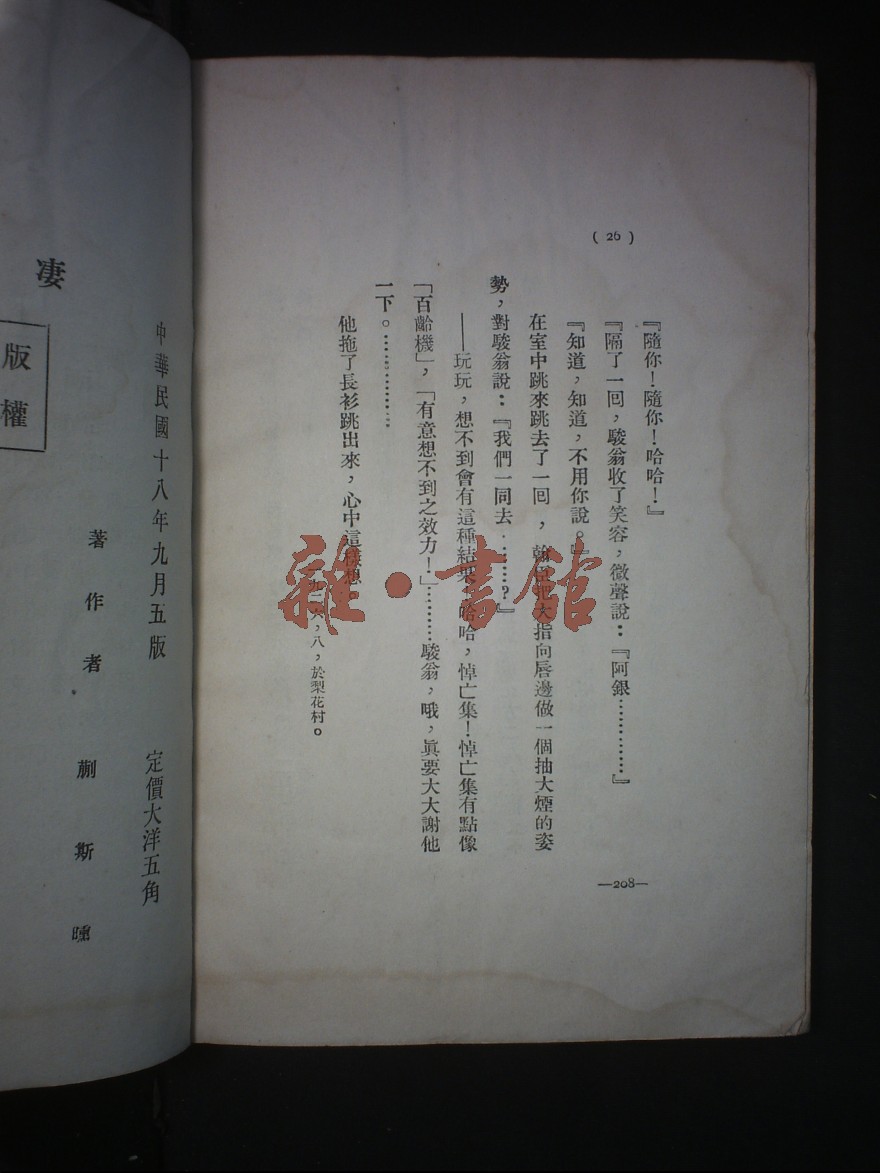 ( 26 )
『隨你！隨你！哈哈！』
『隔了一回，駿翁收了笑容，微聲說：『阿銀…………』
『知道，知道，不用你說。』
在室中跳來跳去了一回，翰 大指向唇邊做一個抽大煙的姿
勢，對駿翁說：『我們一同去………？』
——玩玩，想不到會有這種結果，哈哈，悼亡集！悼亡集有點像
「百齡機」，「有意想不到之效力！」………駿翁，哦，眞要大大謝他
一下。…………
他拖了長衫跳出來，心中這樣想
一九二六，八，於梨花村。
—208—
中華民國十八年九月五版　定價大洋五角
著作者　蒯斯曛
凄
版權
雜·書館